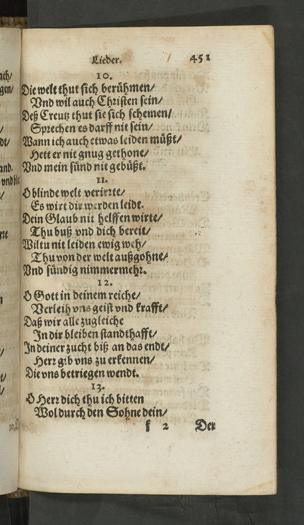 Lieder. 451
10.
Die welt thut sich berühmen/
Vnd wil auch Christen sein/
Deß Creutz thut sie sich schemen/
Sprechen es darff nit sein/
Wann ich auch etwas leiden müßt/
Hett er nit gnug gethone/
Vnd mein sünd nit gebüßt.
11.
O blinde welt verirrte/
Es wirt dir werden leidt.
Dein Glaub nit helffen wirte/
Thu buß vnd dich bereit/
Wiltu nit leiden ewig weh/
Thu von der welt außgohne/
Vnd sündig nimmermehr.
12.
O Gott in deinem reiche/
Verleih vns geist vnd krafft/
Daß wir alle zugleiche
In dir bleiben standthafft/
In deiner zucht biß an das endt/
Herr gib vns zu erkennen/
Die vns betriegen wendt.
13.
O Herr dich thu ich bitten
Wol durch den Sohne dein/
f 2 Der